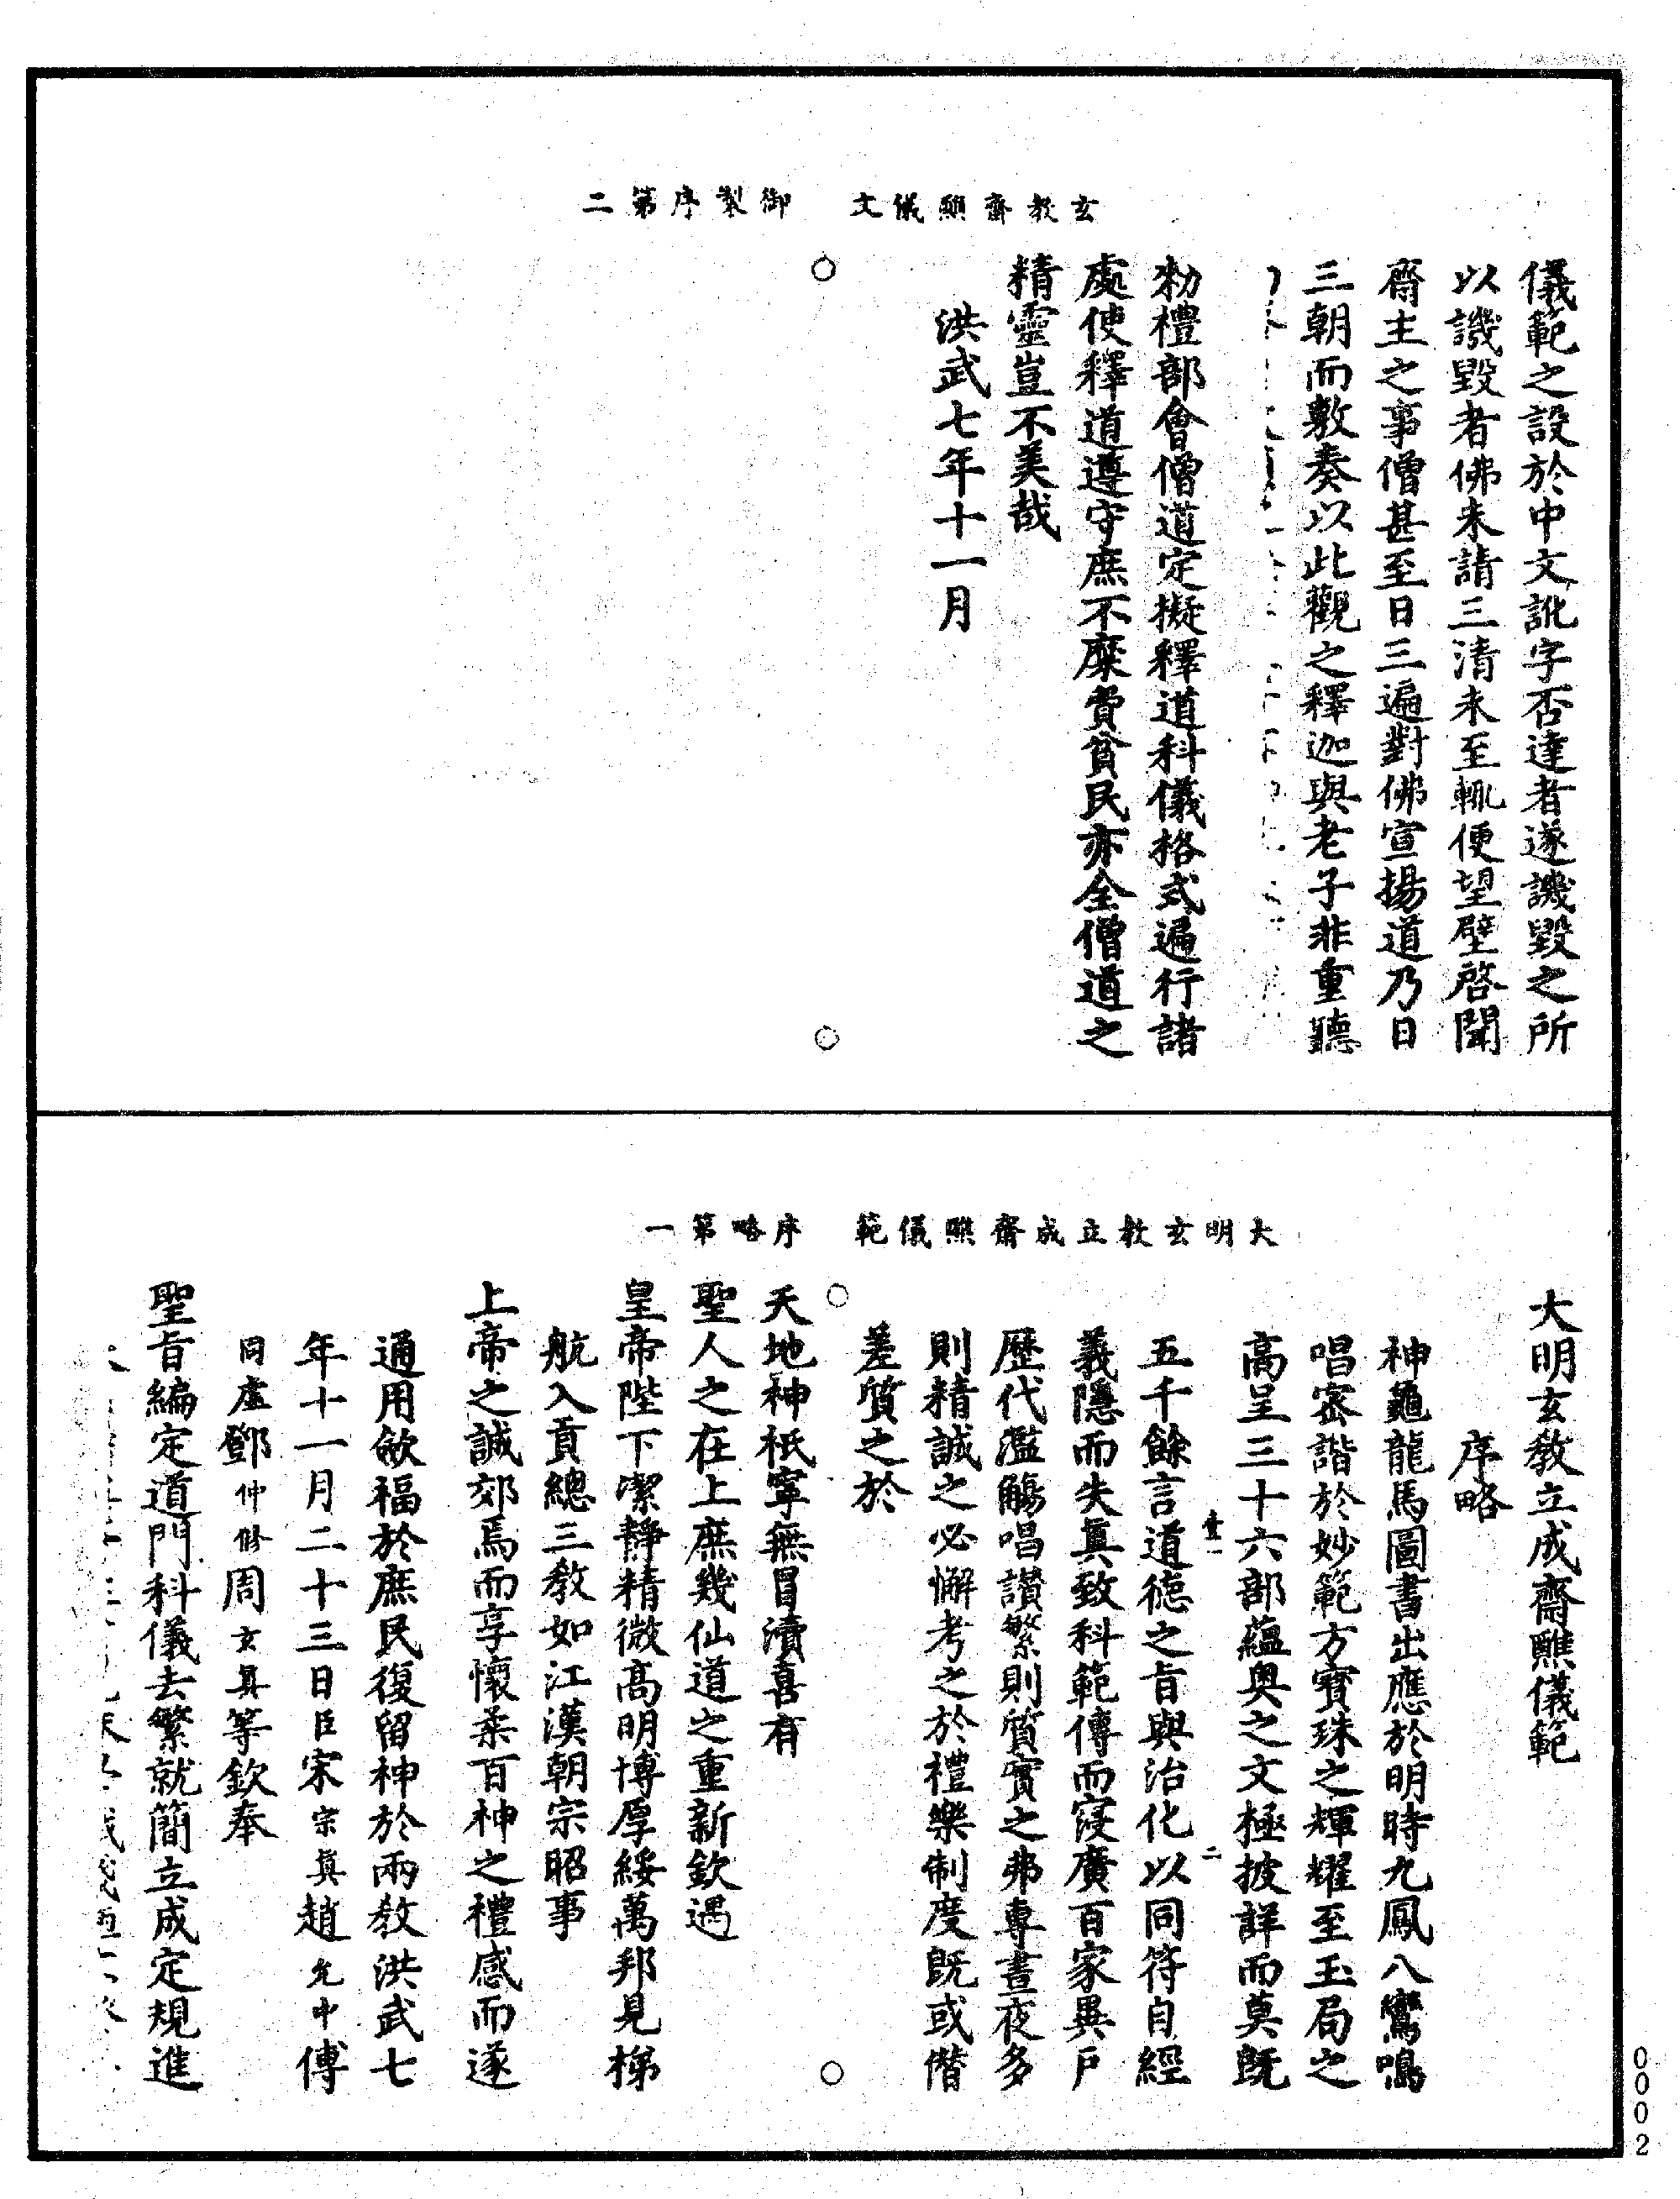 玄教齋醮儀文　御製序第二
儀範之設於中文訛字否達者遂譏毀之所
以譏毀者佛未請三清未至輒便望壁啓聞
齋主之事僧甚至日三遍對佛宣揚道乃日
三朝而敷奏以此觀之釋迦與老子非重聽
勑禮部會僧道定擬釋道科儀格式遍行諸
處使釋道遵守庶不糜費貧民亦全僧道之
精靈豈不美哉
洪武七年十一月
大明玄教立成齋醮儀範　序略第一
大明玄教立成齋醮儀範
序略
神龜龍馬圖書出應於明時九鳳八鸞鳴
唱宻諧於妙範方寳珠之輝耀至玉局之
高呈三十六部蘊奥之文極披詳而莫旣
壹一　二
五千餘言道德之旨與治化以同符自經
義隱而失眞致科範傳而寖廣百家異戶
歴代濫觴唱讃繁則質實之弗專晝夜多
則精誠之必懈考之於禮樂制度旣或僭
差質之於
天地神祇寧無冒瀆喜有
聖人之在上庶幾仙道之重新欽遇
皇帝陛下潔靜精微髙明博厚綏萬邦見梯
航入貢總三教如江漢朝宗昭事
上帝之誠郊焉而享懷柔百神之禮感而遂
通用歛福於庶民復留神於兩教洪武七
年十一月二十三日臣宋宗眞趙允中傅
同虛鄧仲修周玄眞等欽奉
聖旨編定道門科儀去繁就簡立成定規進
0002